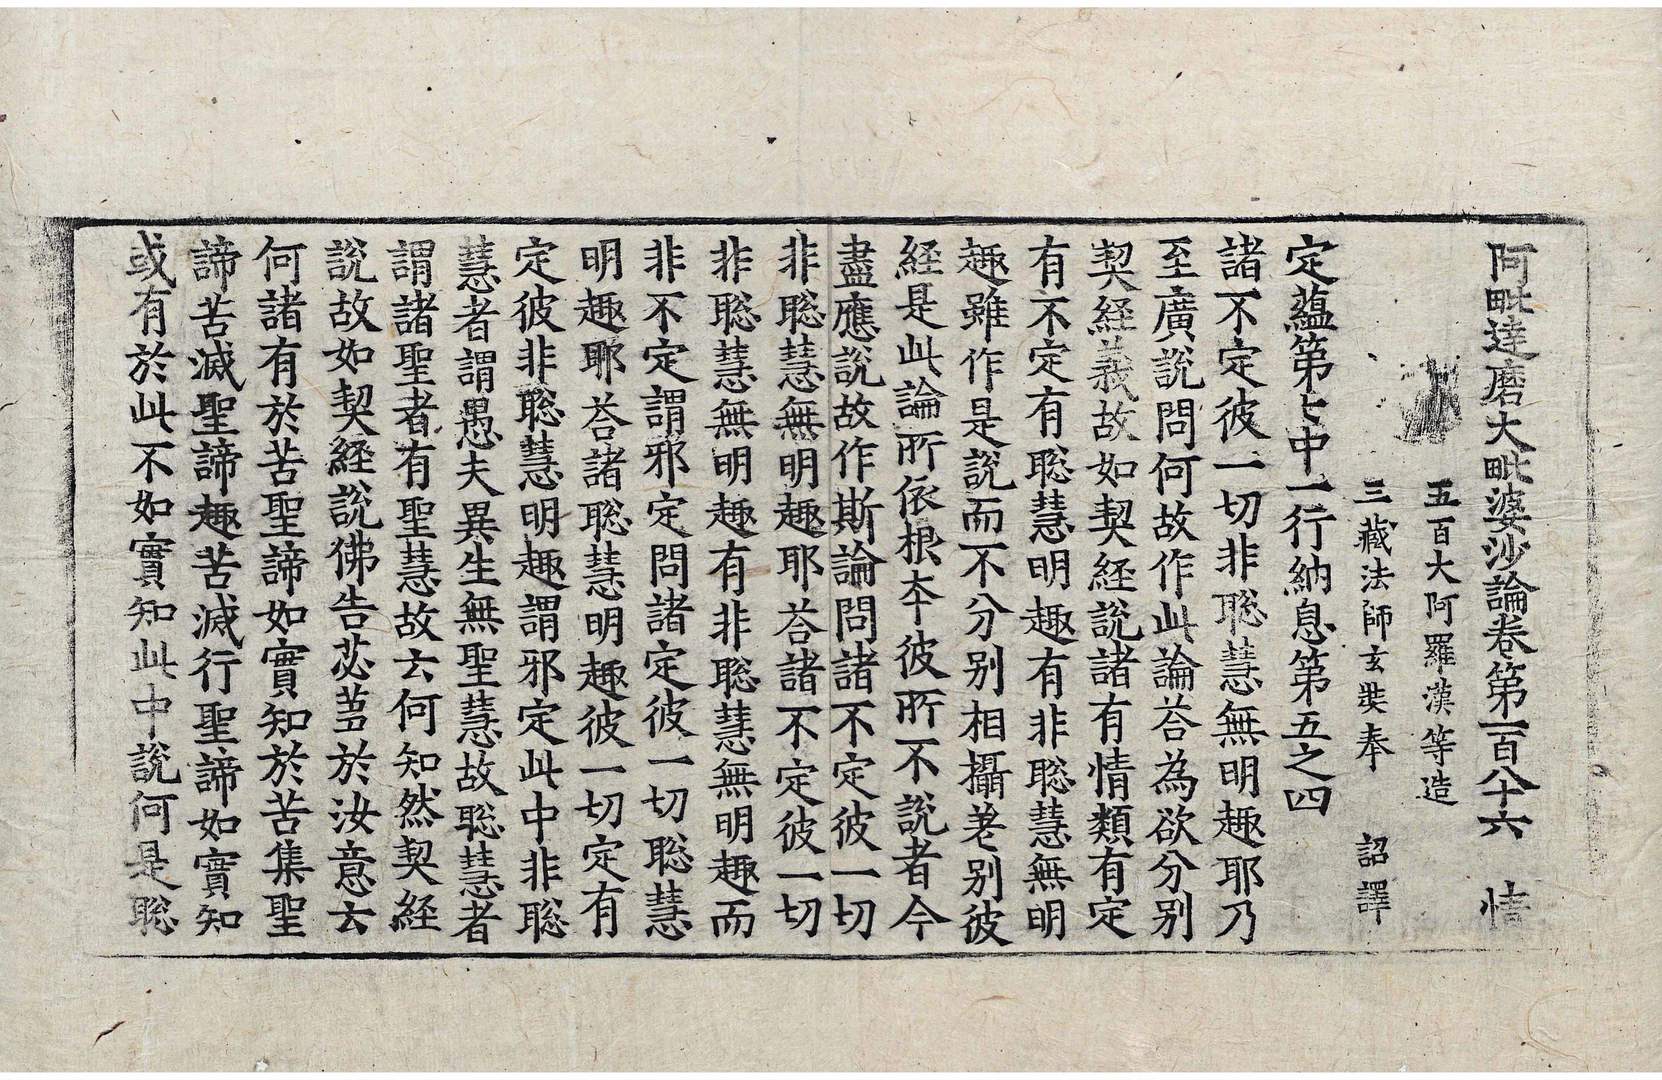 阿毗達磨大毗婆沙論卷第一百八十六　情
五百大阿羅漢等造
三藏法師玄奘奉　詔譯
定蘊第七中一行納息第五之四
諸不定彼一切非聡慧無明趣耶乃
至廣說問何故作此論荅為欲分别
契経義故如契経說諸有情類有定
有不定有聡慧明趣有非聡慧無明
趣雖作是說而不分别相攝差别彼
経是此論所依根本彼所不說者今
盡應說故作斯論問諸不定彼一切
非聡慧無明趣耶荅諸不定彼一切
非聡慧無明趣有非聡慧無明趣而
非不定謂邪定問諸定彼一切聡慧
明趣耶荅諸聡慧明趣彼一切定有
定彼非聡慧明趣謂邪定此中非聡
慧者謂愚夫異生無聖慧故聡慧者
謂諸聖者有聖慧故云何知然契経
說故如契経說佛告苾蒭於汝意云
何諸有於苦聖諦如實知於苦集聖
諦苦滅聖諦趣苦滅行聖諦如實知
或有於此不如實知此中說何是聡